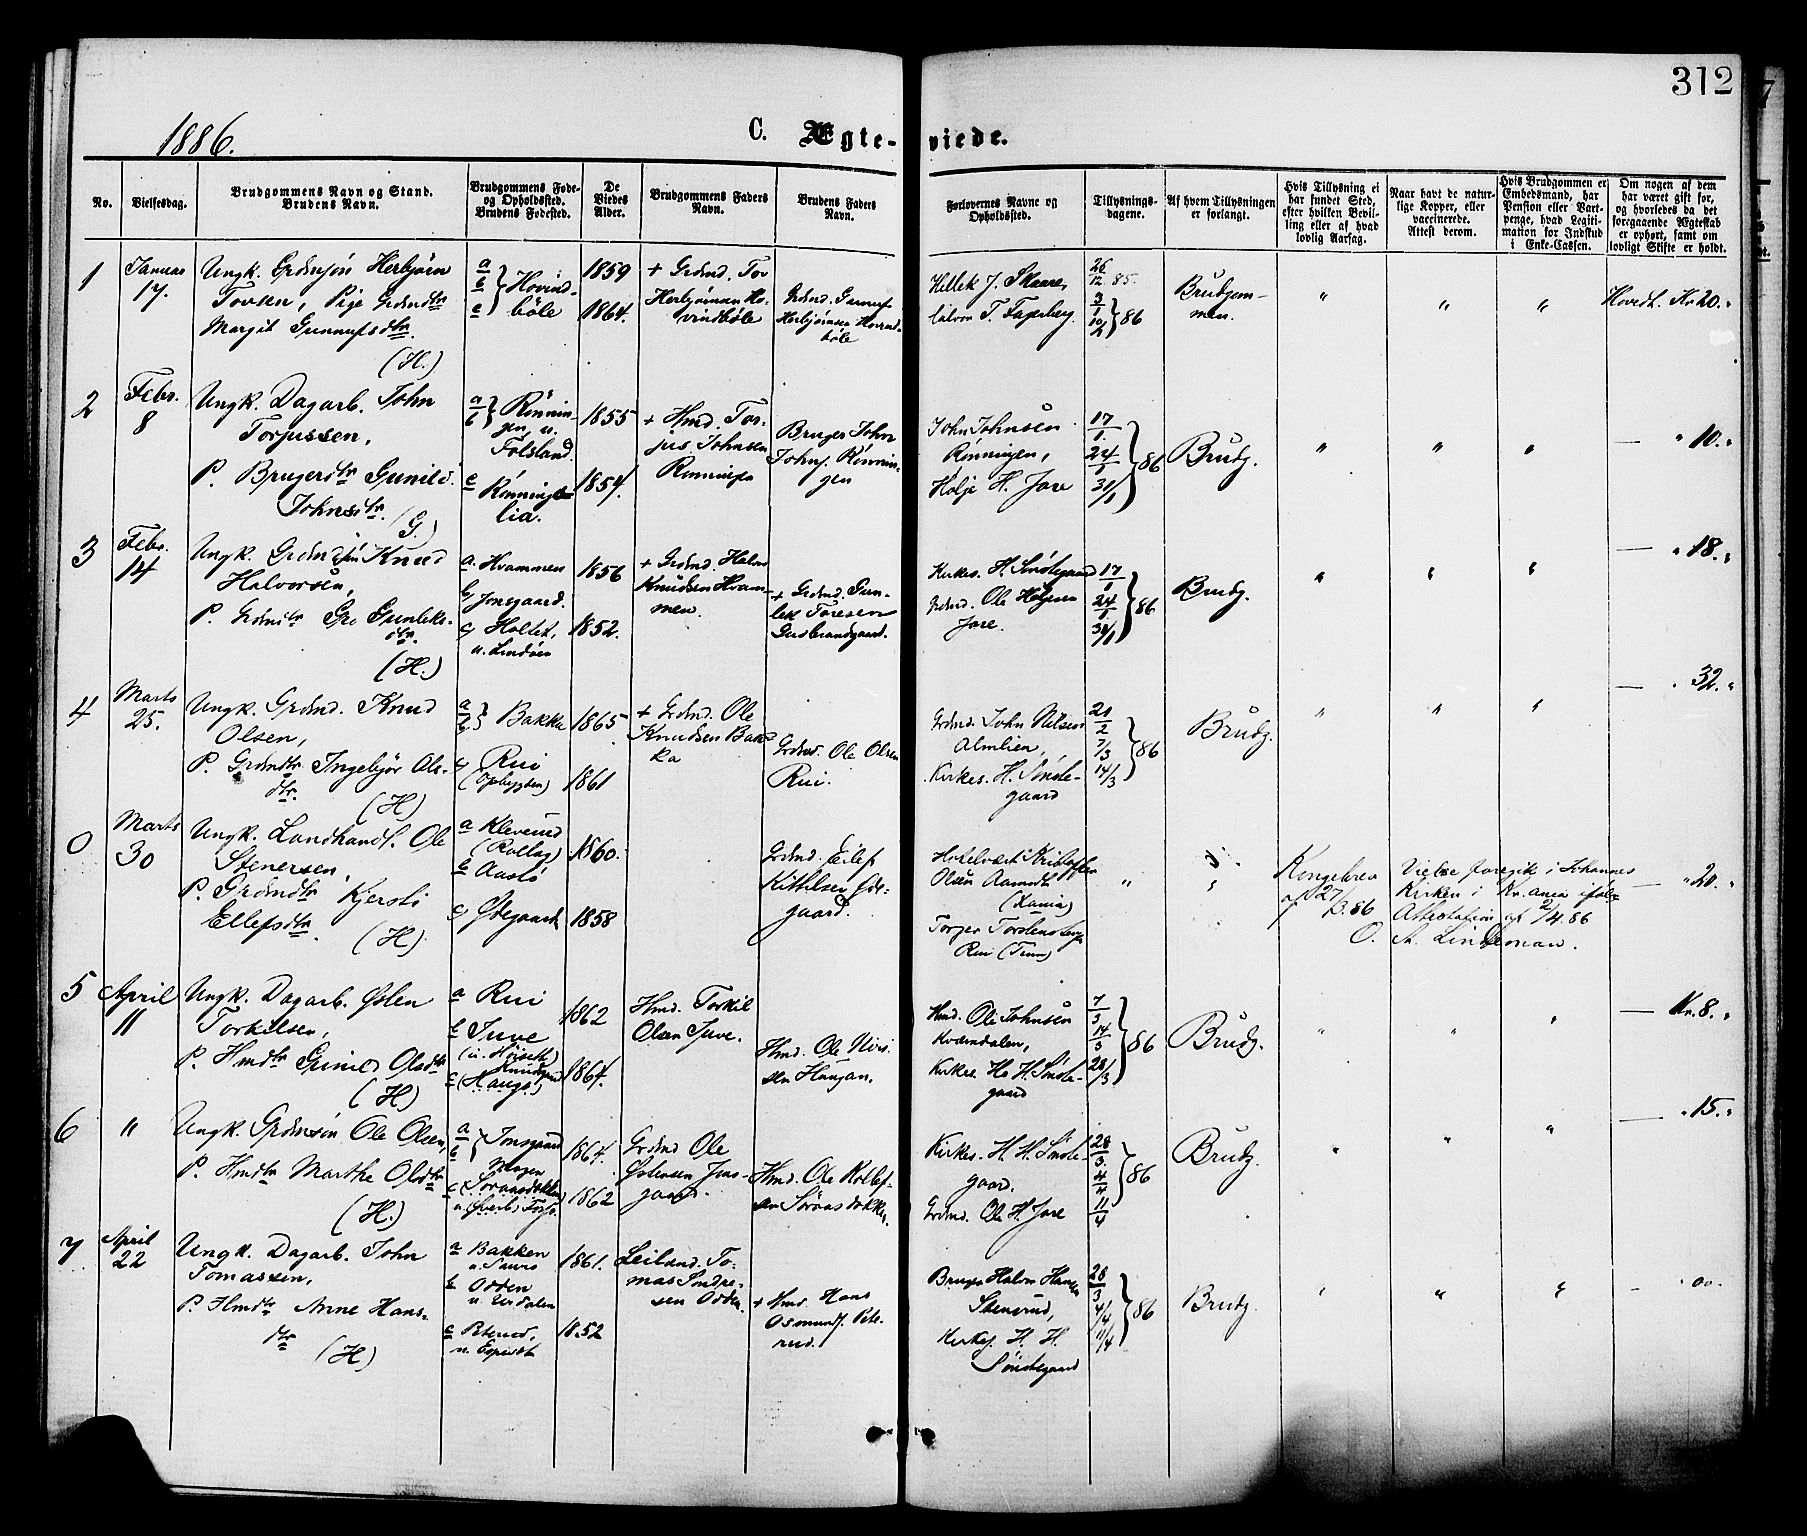 312
1886.
C. Ægte-viede.
No.
Vielsesdag.
Brudgommens Navn og Stand.
Brudens Navn.
Brudgommens Føde-
og Opholdssted.
Brudens Fødested.
De
Viedes
Alder.
Brudgommens Faders
Navn.
Brudens Faders
Navn.
Forlovernes Navne og
Opholdssted.
Tillysnings-
dagene.
Af hvem Tillysningen
er forlangt.
Hvis Tillysning ei
har fundet Sted,
efter hvilken Bevil-
ling eller af hvad
lovlig Aarsag.
Naar havt de natur-
lige Kopper, eller
vaccinerede.
Attest derom.
Hvis Brudgommen er
Embedsmand, har
Pension eller Vart-
penge, hvad Legiti-
mation for Indskud
i Enke-Cassen.
Om nogen af dem
har været gift før,
og hvorledes da det
foregaaende Ægteskab
er ophørt, samt om
lovligt Skifte er holdt.
1
Januar
17.
Ungk. Grdmsøn Herbjørn
Tovsen, Pige Grdmdtr
Margit Gunnufsdtr.
(H.)
a
b
c
} Hovind-
bøle
1859
1864.
+ Grdmd. Tov
Herbjørnsen Ho-
vindbøle
Grdmd. Gunnuf
Herbjørnsen Hovind-
bøle
Hellek J. Skaare,
Halvor T. Fagerberg.
26/12 85.
3/1
10/1 } 86
Brudgom-
men.
"
"
"
Hovedl. Kr 20. "
2
Febr.
8
Ungk. Dagarb. John
Torjussen,
P. Brugerdtr Gunild
Johnsdtr.
(G.)
a
b } Rønnin-
gen, u.
Følsland.
c Rønnings-
lia.
1855
1854.
+ Hmd. Tor-
jus Johnsen
Rønningen
Bruger John
Johns. Rønnin-
gen
John Johnsen
Rønningen,
Holje H. Jore
17/1.
24/1
31/1 } 86
Brudg.
"
"
"
— " 10. "
3
Febr.
14
Ungk. Grdmdsøn Knud
Halvorsen,
P. Grdmdtr Gro Gunleks-
dtr.
(H.)
a. Hvammen
b, Jonsgaard.
c, Holtet,
1856
1852.
+ Grdmd. Halvor
Knudsen Hvam-
men.
+ Grdmd. Gun-
lek Toresen
Gusbrandgaard.
Kirkes. H. Søndegaard
Grdmd. Ole Holjesen
Jore.
17/1
24/1
31/1 } 86
Brudg.
"
"
"
— " 18. "
4
Marts
25.
Ungk. Grdmd. Knud
Olsen,
P. Grdmdtr Ingebjør Ols-
dtr.
(H)
a
b } Bakka
c, Rui
(Opbygden)
1865
1861
+ Grdmd. Ole
Knudsen Bak-
ka
Grdmd. Ole Olsen
Rui.
Grdmd. John Nilsen
Almlien,
Kirkes. H. Sønde-
gaard
21/2
7/3
14/3 } 86
Brudg.
"
"
"
— " 32. "
0
Marts
30
Ungk. Landhandl. Ole
Stenersen,
P. Grdmdtr Kjersti
Ellefsdtr.
(H)
a Kleverud
(Rollag)
b Aasto
c, Ødegaard
1860.
1858
Grdmd. Eilef
Kittilsen Øde-
gaard.
Hotelvært Kristoffer
Olsen Aamodt
(Xania)
Torger Torstensen
Rui (Tinn)
"
"
Kongebrev
af 27/3.86
Vielse foregik i Johannes
Kirken i Kr.ania ifølge
Attestation af 2/4.86
O. A. Lindeman.
— " 20. "
5
April
11
Ungk. Dagarb. Østen
Torkilsen,
P. Hmdtr Gunild Olsdtr
(H)
a Rui
b Juve
1862
1864.
Hmd. Torkil
Olsen Juve.
Hmd. Ole Niri-
sen Haugan.
Hmd. Ole Johnsen
Kvæmdalen,
Kirkes. H. H. Sønde-
gaard
7/3
14/3
28/3 } 86
Brudg.
"
"
"
— Kr. 8. "
6
"
Ungk. Grdmsøn Ole Olsen,
P. Hmdtr Marthe Olsdtr
(H.)
a
b } Jonsgaard
1864.
1862
Grdmd Ole
Østensen Jons-
gaard.
Hmd. Ole Rollef-
sen Søraasdokken
Kirkes. H. H. Sønde-
gaard.
Grdmd. Ole H. Jore
28/3
4/4
11/4 } 86
Brudg.
"
"
"
— " 15. "
7
April
22
Ungk. Dagarb. John
Tomassen,
P. Hmdtr Anne Hans-
dtr
(H)
a Bakken
b Odden
1861.
1852
Leilænd. To-
mas Sondre-
sen Odden.
+ Hmd. Hans
Osmunds. Pete-
rud.
Bruger Halvor Hansen
Stenerud,
Kirkes. H. H.
Søndegaard
28/3
4/4
11/4 } 86
Brudg.
"
"
"
— " 00. "